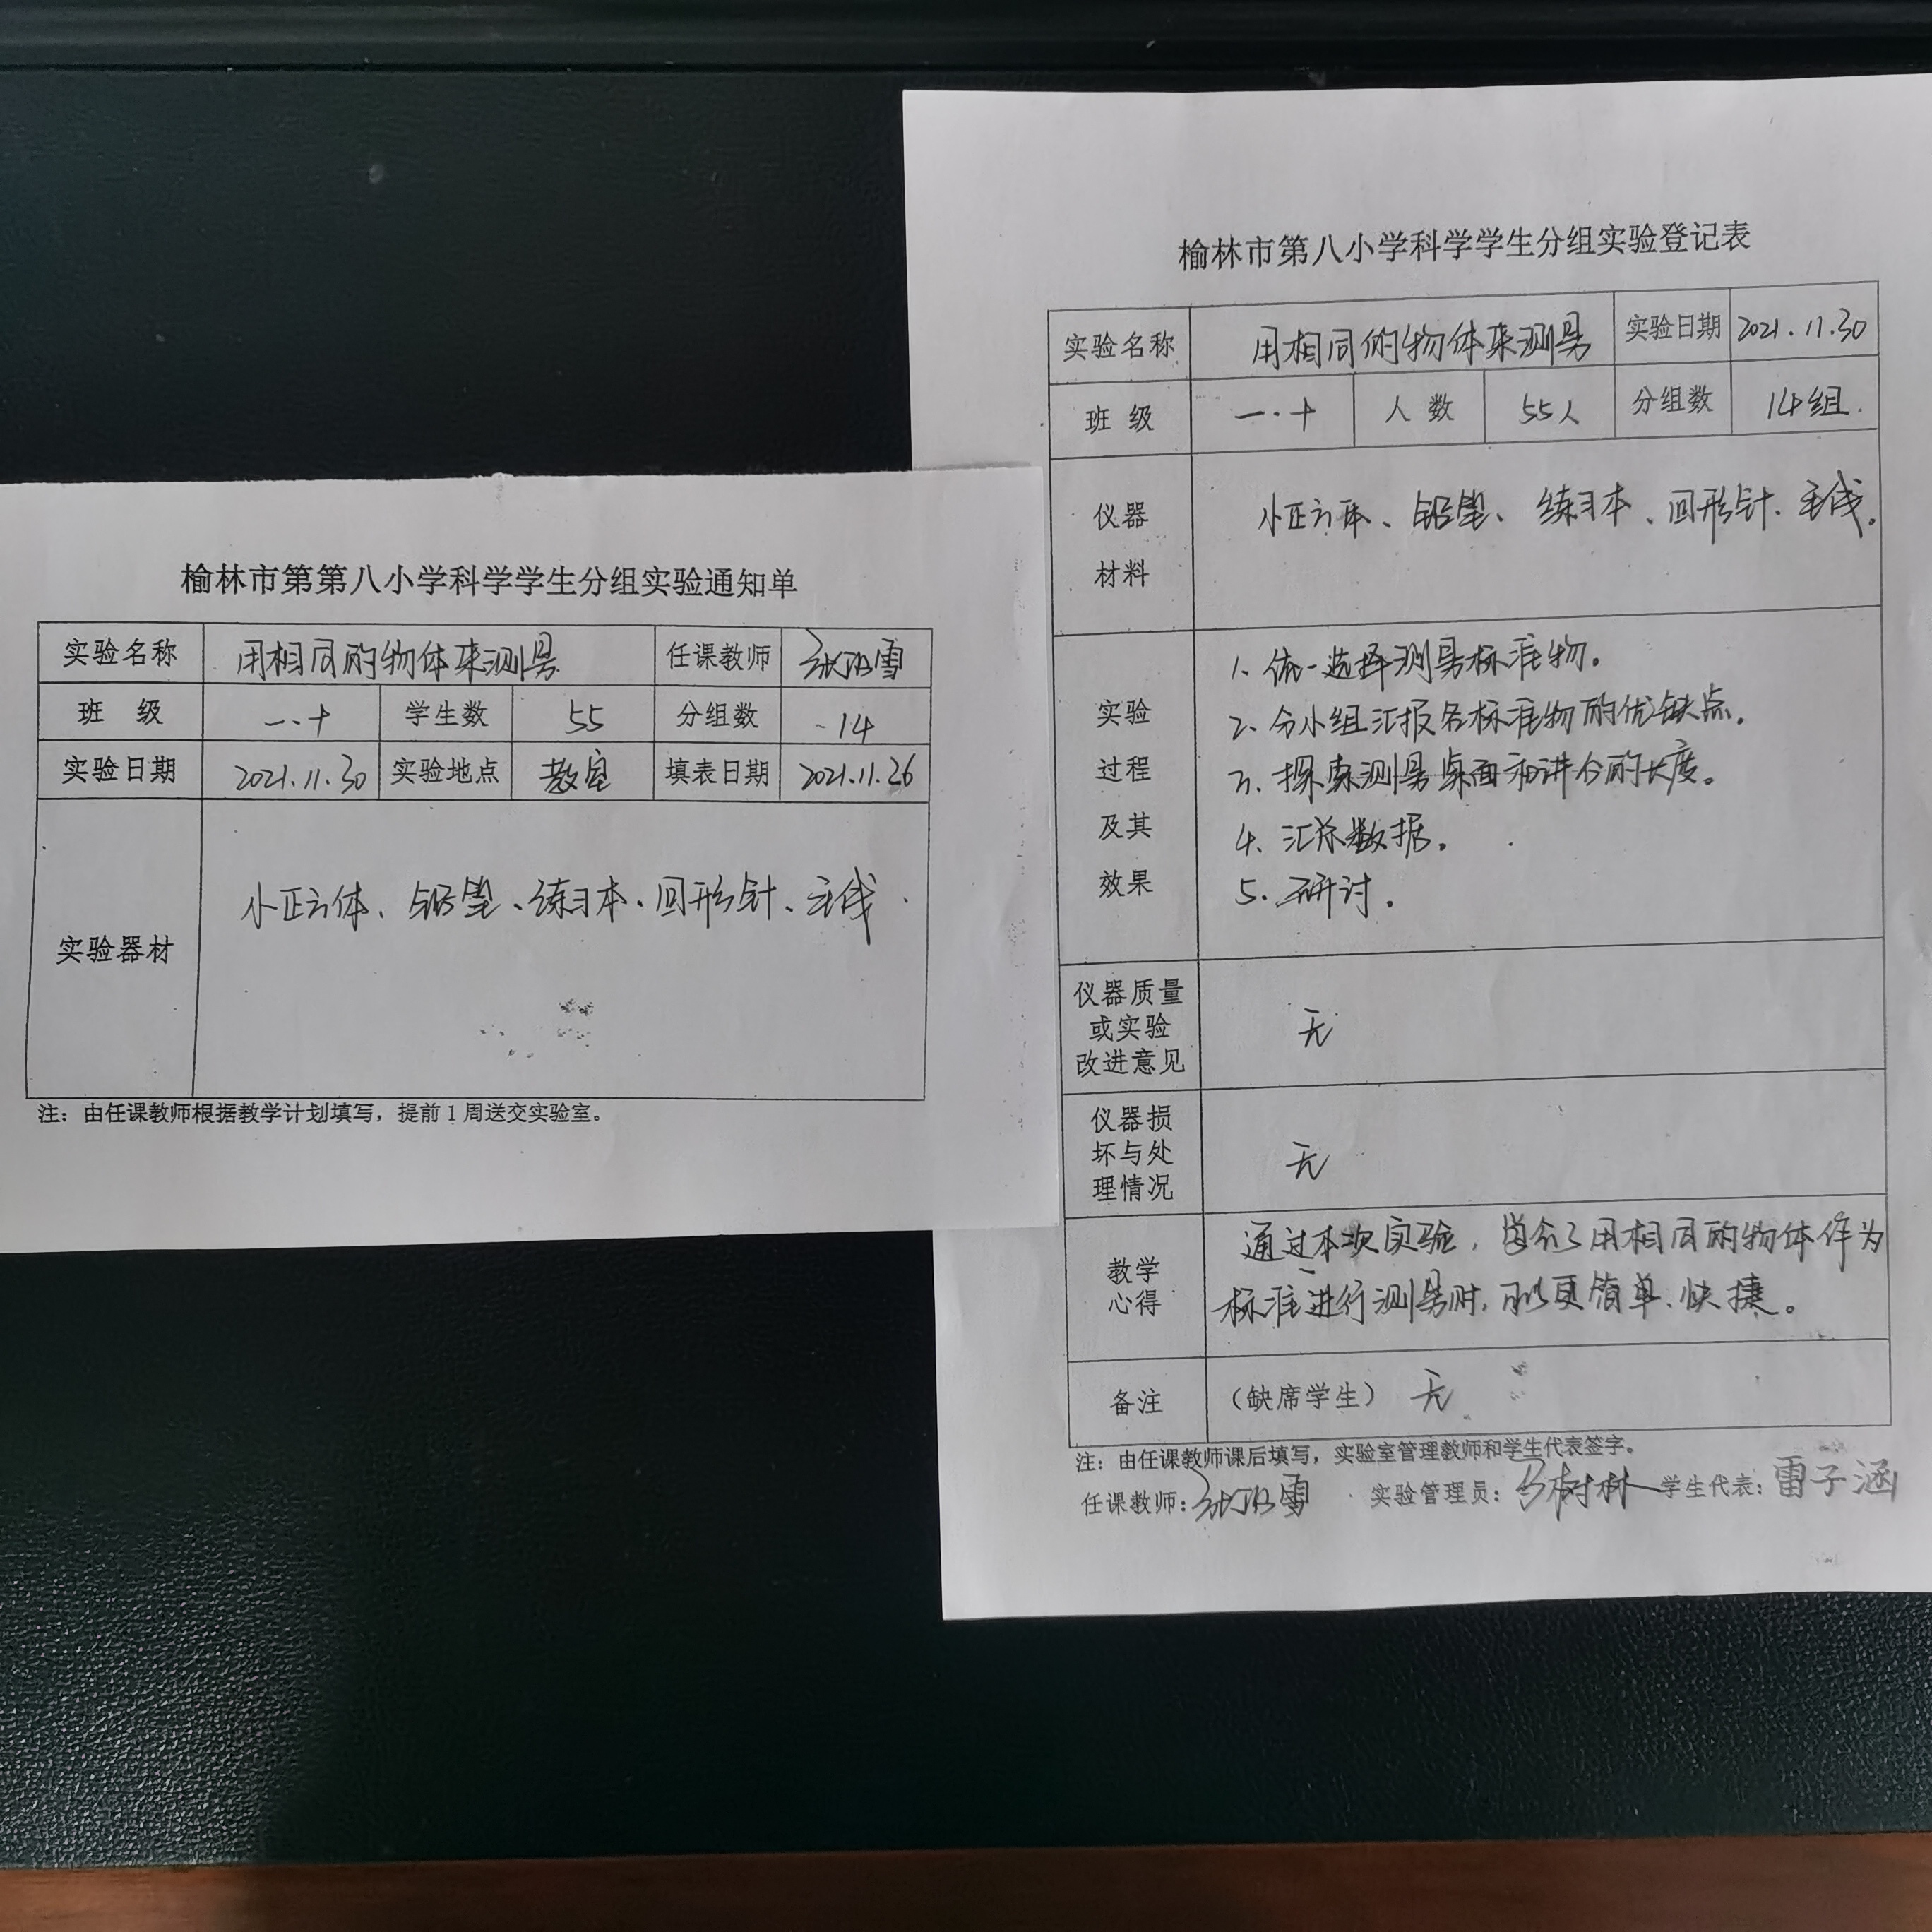 榆林市第第八小学科学学生分组实验通知单
实验名称 用相同的物体来测量 任课教师
班 级 一.十 学生数 55 分组数 14
实验日期 2021.11.30 实验地点 教室 填表日期 2021.11.26
实验器材 小正方体、铅笔、练习本、回形针、毛线.
注：由任课教师根据教学计划填写，提前1周送交实验室。
榆林市第八小学科学学生分组实验登记表
实验名称 用相同的物体来测量 实验日期 2021.11.30
班 级 一.十 人 数 55人 分组数 14组.
仪器
材料
小正方体、铅笔、练习本、回形针、毛线。
实验
过程
及其
效果
1、统一选择测量标准物。
2、分小组汇报各标准物的优缺点。
3、探索测量桌面和讲台的长度。
4、汇总数据。
5、研讨。
仪器质量
或实验
改进意见
无
仪器损
坏与处
理情况
无
教学
心得
通过本次实验，学会了用相同的物体作为
标准进行测量时，可以更简单、快捷。
备注 （缺席学生） 无
注：由任课教师课后填写，实验室管理教师和学生代表签字。
任课教师： 实验管理员： 树林 学生代表：雷子涵